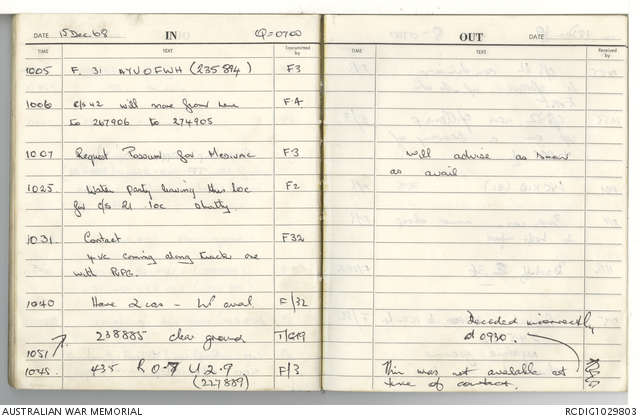 DATE 15 Dec 68 IN Q=0700
TIME TEXT Transmitted by
1005 F. 31 AYUOFWH (235894) F3
1006 c/s 42 will move from here F4
to 267906 to 274905
1007 Request Possum for F3
1025 Water party leaving this loc F2
for c/s 21 loc shortly
1031 Contact F32
4 vc coming along track one
with RPG.
1040 Have 2 cas - avail F/32
238885 clear ground T/G19
1051
1045 435 R 0.7 U 2.9 F/3
(227889)
OUT
TIME TEXT Received by
Will advise as soon
as avail
Decoded incorrectly
at 0930.
This was not available at
time of contact.
AUSTRALIAN WAR MEMORIAL RCDIG1029803